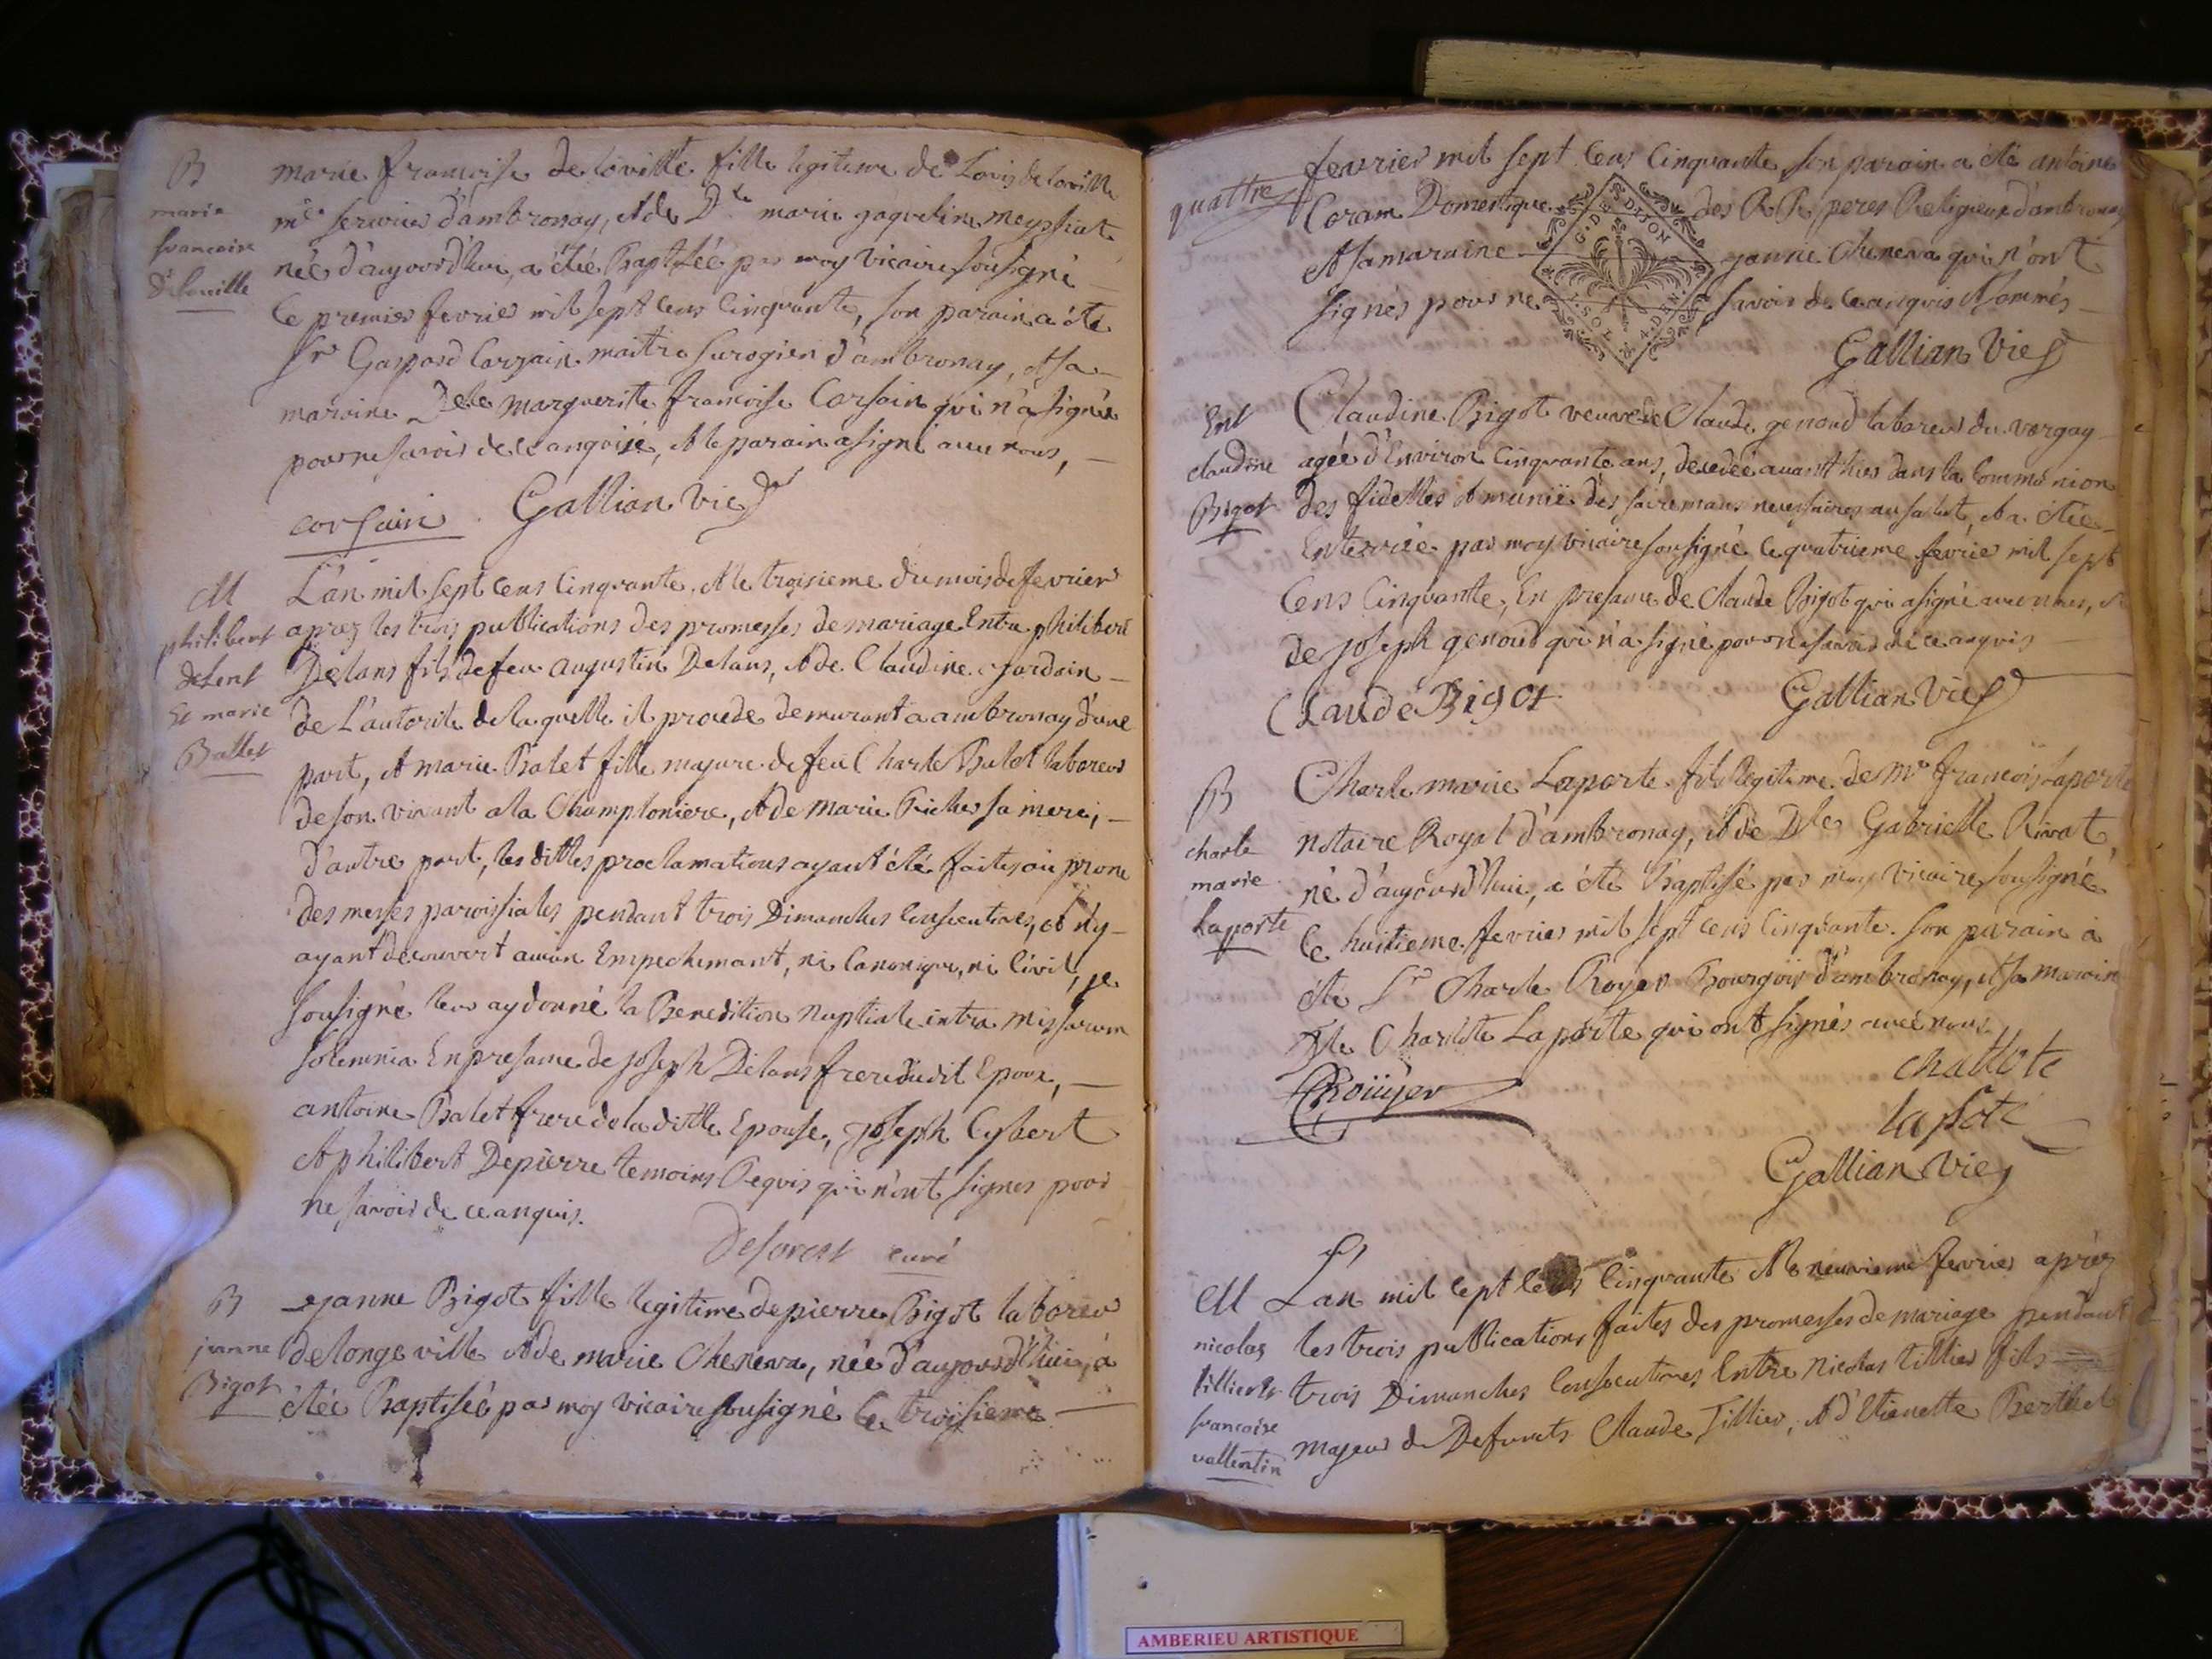 B
marie
francoise
Deloville
marie francoise de loville fille legitime de Louis deloville
me serurier d'ambronay, et de Dle marie jaqueline meyssiat
née d'aujourd'hui, a étée Baptisée par moy vicaire sousigné
le premier fevrier mil sept cens Cinquante, son parain a été
Sr Gaspard Corsain maitre surogien d'ambronay, et sa
maraine Delle marguerite francoise Corsain qui n'a signée
pour ne savoir de ce anquise, et le parain a signé avec nous,
corsain Gallian vic
M
philibert
delent
et marie
Ballet
L'an mil sept cens Cinquante, et le troisieme du mois de fevrier
aprez les trois publications des promesses de mariage Entre philibert
Delans fils de feu augustin Delans, et de Claudine jardain
de L'autorité de laquelle il procede demurant a ambronay d'une
part, et marie Balet fille majure de feu Charle Balet laboreur
de son vivant a la Champloniere, et de marie Richer sa mere,
d'autre part, les dittes proclamations ayant été faites au prone
des messes paroissiales pendant trois Dimanches Consecutives, et n'y
ayant decouvert aucun Empechemant, ni Canonique, ni Civil, je
sousigné leur ay donné la Benedition Nuptiale intra missarum
solemnia En presame de joseph Delans frere dudit Epoux,
antoine Balet frere de la ditte Epouse, joseph Cybert
et philibert Depierre temoins Requis qui n'ont signés pour
ne savoir de ce anquis.
Deforest curé
B
janne
Bigot
janne Bigot fille legitime de pierre Bigot laboreur
de longeville et de marie Chenevа, née d'aujourd'hui, a
étée Baptisée par moy vicaire sousigné le troisieme
quattre
fevrier mil sept Cens Cinquante, son parain a été antoine
Coram Domestique des RR peres Religieux d'ambronay
et sa maraine janne Cheneva qui n'ont
signés pour ne savoir de ce anquis et sommés
G. DE DIJON
4. DEN.
Gallian Vic
Ent
claudine
Bigot
Claudine Bigot veuve de Claude genoud laboreur du vorgay
agée d'Environ Cinquante ans, decedée avant hier dans la Commnion
des fidelles et munië des sacremans necessaires au salut, et a étée
Enterrée par moy vicaire sousigné le quatrieme fevrier mil sept
Cens Cinquantte, En presame de Claude Bigot qui a signé avec nous, et
de joseph genoud qui n'a signé pour ne savoir de ce anquis
Claude Bigot Gallian Vic
B
charle
marie
Laporte
Charle marie Laporte fils legitime de Mr francois Laporte
notaire Royal d'ambronay, et de Dlle Gabrielle Rivat,
né d'aujourd'hui, a été Baptisé par moy vicaire sousigné
le huitieme fevrier mil sept cens Cinquante. son parain a
été Sr Charle Royer Bourgois d'ambronay, et sa maraine
Dlle Charlote Laporte qui ont signés avec nous
CRoüyer challote
laporte
Gallian Vic
M
nicolas
tillier et
francoise
vallentin
L'an mil sept cens Cinquante et le neuvieme fevrier aprèz
les trois publications faites des promesses de mariage pendant
trois Dimanches Consecutives Entre Nicolas tillier fils
majeur de Defunts Claude Tillier, et d'Etienette Berthet
AMBERIEU ARTISTIQUE